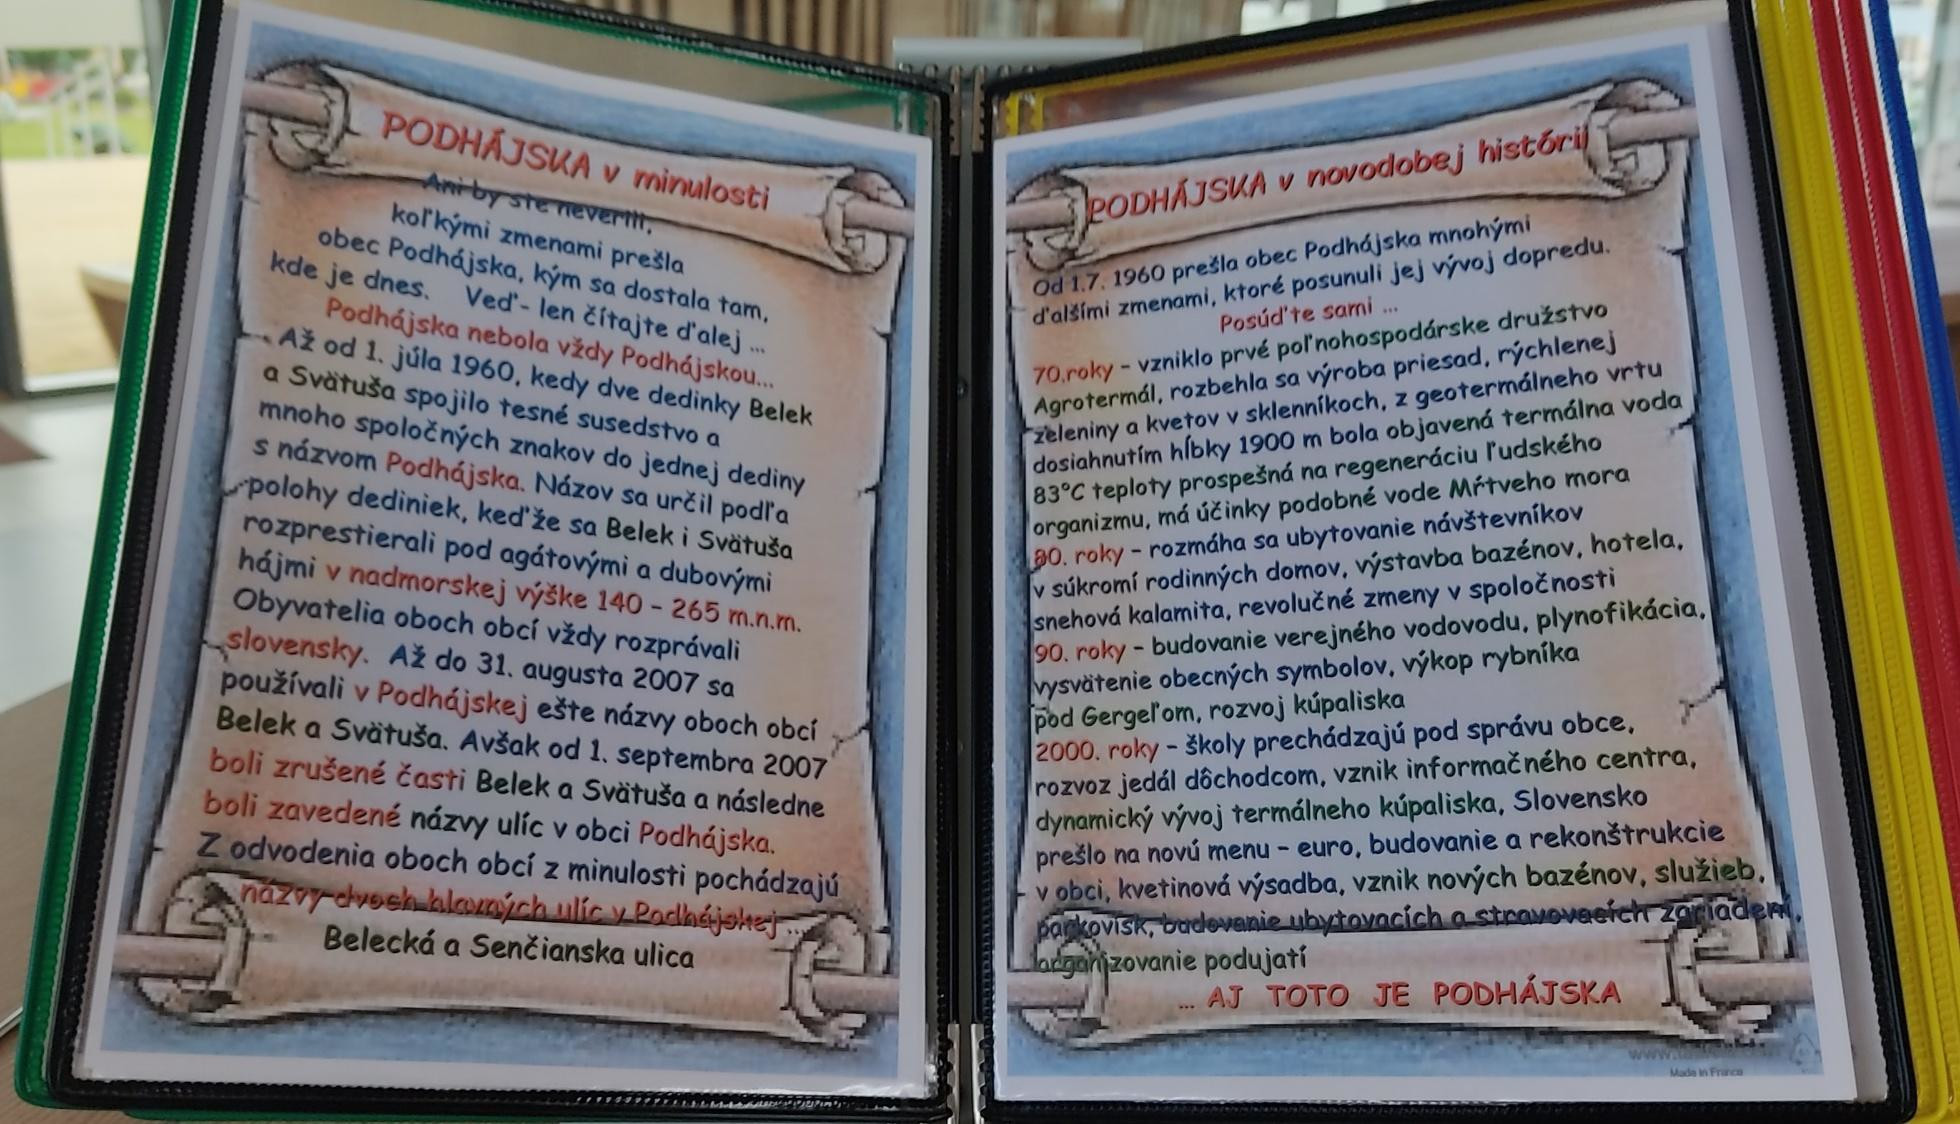 PODHÁJSKA v minulosti
Ani by ste neverili,
koľkými zmenami prešla
obec Podhájska, kým sa dostala tam,
kde je dnes. Veď- len čítajte ďalej ...
Podhájska nebola vždy Podhájskou...
Až od 1. júla 1960, kedy dve dedinky Belek
a Svätuša spojilo tesné susedstvo a
mnoho spoločných znakov do jednej dediny
s názvom Podhájska. Názov sa určil podľa
polohy dediniek, keďže sa Belek i Svätuša
rozprestierali pod agátovými a dubovými
hájmi v nadmorskej výške 140 - 265 m.n.m.
Obyvatelia oboch obcí vždy rozprávali
slovensky. Až do 31. augusta 2007 sa
používali v Podhájskej ešte názvy oboch obcí
Belek a Svätuša. Avšak od 1. septembra 2007
boli zrušené časti Belek a Svätuša a následne
boli zavedené názvy ulíc v obci Podhájska.
Z odvodenia oboch obcí z minulosti pochádzajú
názvy dvoch hlavných ulíc v Podhájskej ...
Belecká a Senčianska ulica
PODHÁJSKA v novodobej histórii
Od 1.7. 1960 prešla obec Podhájska mnohými
ďalšími zmenami, ktoré posunuli jej vývoj dopredu.
Posúďte sami ...
70.roky - vzniklo prvé poľnohospodárske družstvo
Agrotermál, rozbehla sa výroba priesad, rýchlenej
zeleniny a kvetov v sklenníkoch, z geotermálneho vrtu
dosiahnutím hĺbky 1900 m bola objavená termálna voda
83°C teploty prospešná na regeneráciu ľudského
organizmu, má účinky podobné vode Mŕtveho mora
80. roky - rozmáha sa ubytovanie návštevníkov
v súkromí rodinných domov, výstavba bazénov, hotela,
snehová kalamita, revolučné zmeny v spoločnosti
90. roky - budovanie verejného vodovodu, plynofikácia,
vysvätenie obecných symbolov, výkop rybníka
pod Gergeľom, rozvoj kúpaliska
2000. roky - školy prechádzajú pod správu obce,
rozvoz jedál dôchodcom, vznik informačného centra,
dynamický vývoj termálneho kúpaliska, Slovensko
prešlo na novú menu - euro, budovanie a rekonštrukcie
v obci, kvetinová výsadba, vznik nových bazénov, služieb,
parkovísk, budovanie ubytovacích a stravovacích zariadení,
organizovanie podujatí
... AJ TOTO JE PODHÁJSKA
Made in France